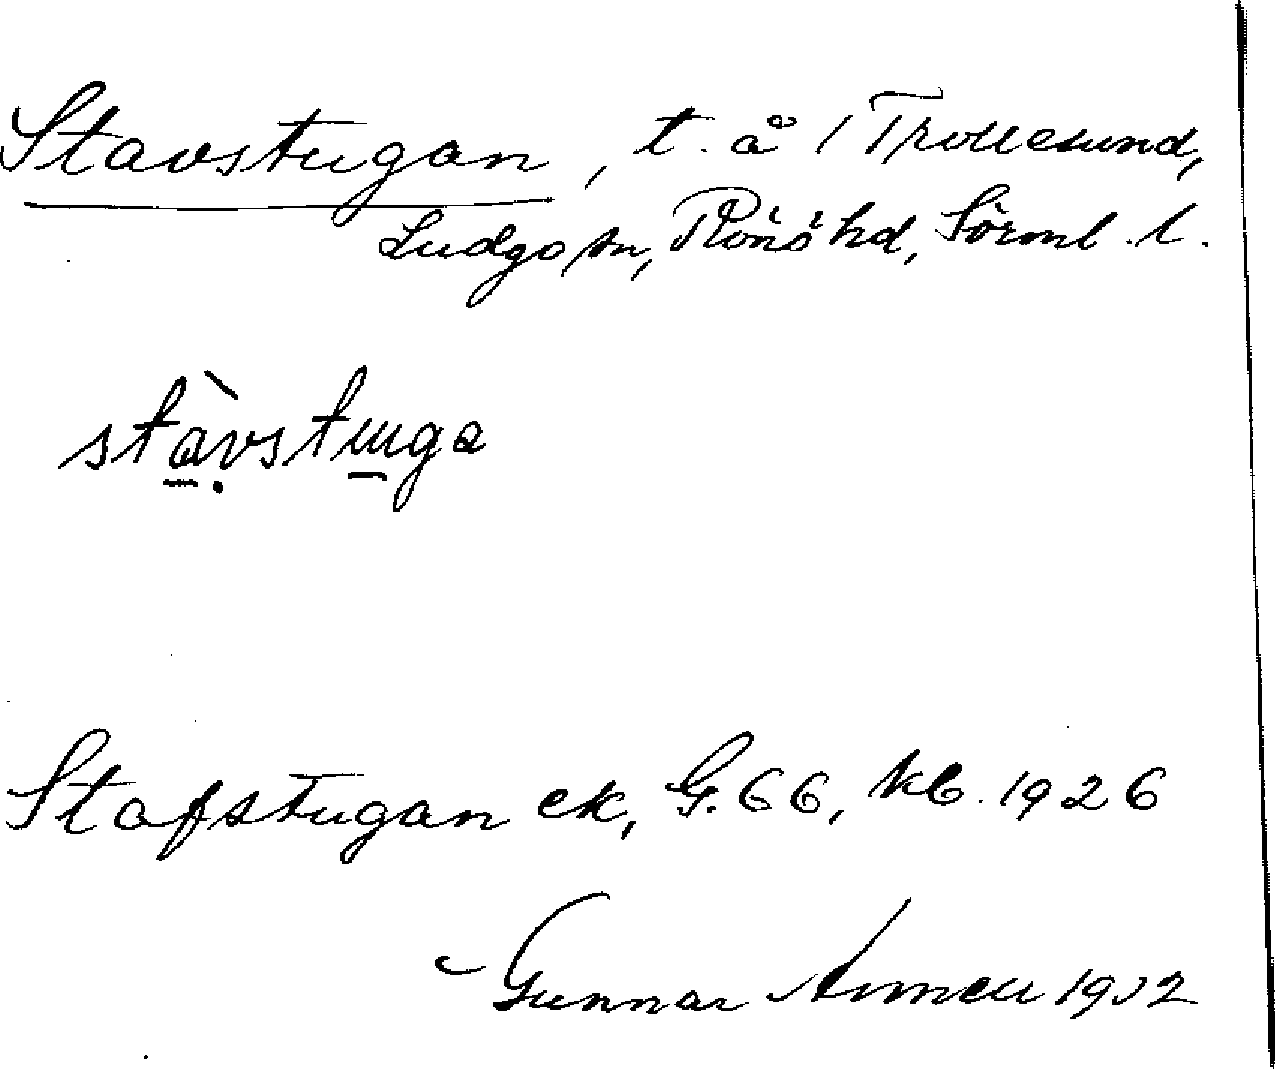 Stavstugan, t. å 1 Trollesund,
Ludgo sn, Rönö hd, Sörml. l.
stàvstuga
Stafstugan ek, G. 66, kb. 1926
Gunnar 1932